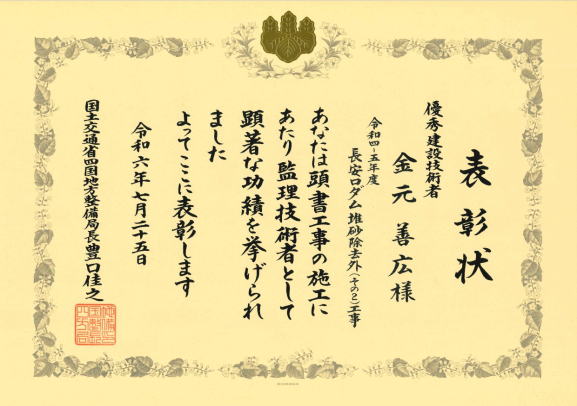 表彰状
優秀建設技術者
金元善広様
令和四~五年度
長安口ダム堆砂除去外(その2)工事
あなたは頭書工事の施工に
あたり監理技術者として
顕著な功績を挙げられ
ました
よってここに表彰します
令和六年七月二十五日
国土交通省四国地方整備局長豊口佳之